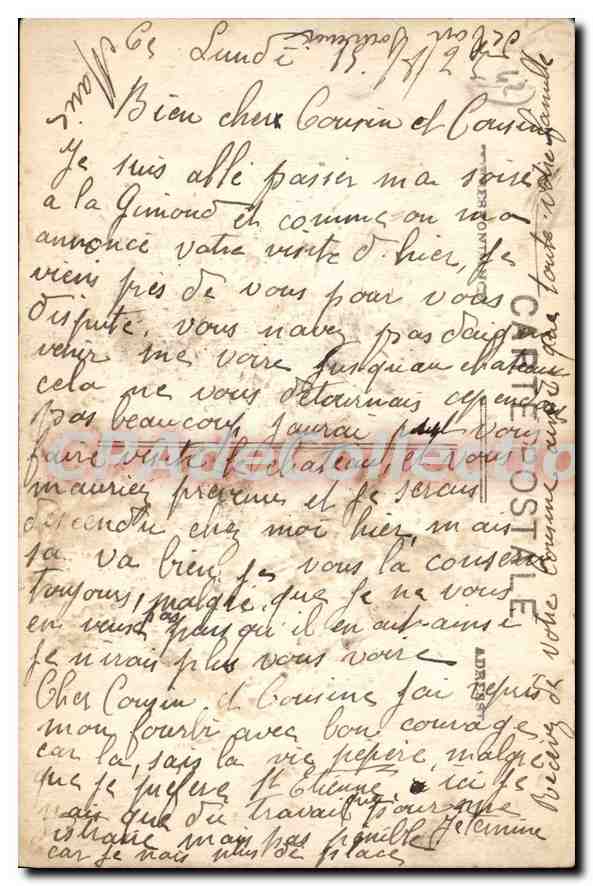 Ce Lundi 15/8/27
Bien cher Cousin et Cousine
Je suis allé passer ma soirée
a la Gimond et comme on m'a
annoncé votre visite d'hier, je
viens près de vous pour vous
disputé, vous navez pas daigné
venir me voire Jusquau chateau
cela ne vous détournais cependant
pas beaucoup, Jaurai pu vous
faire visité le chateau, et vous
mauriez prévenu et Je serais
descendu chez moi hier, mais
sa va bien, je vous la conserve
toujours, malgré que je ne vous
en veuse pas quoi qu'il en ait ainsi
Je n'irais plus vous voire
Cher Cousin et Cousine J'ai repris
mon fourbi avec bon courage
car la, sais la vie pepère, malgré
que je préfère St Etienne, ici je
nais que du travail pour me
distraire mais pas pénible Je termine
car je nais plus de place
Recevez de votre Cousine ainsi que toute votre famille
Marie
CARTE POSTALE
CORRESPONDANCE
ADRESSE
CPADeCollection